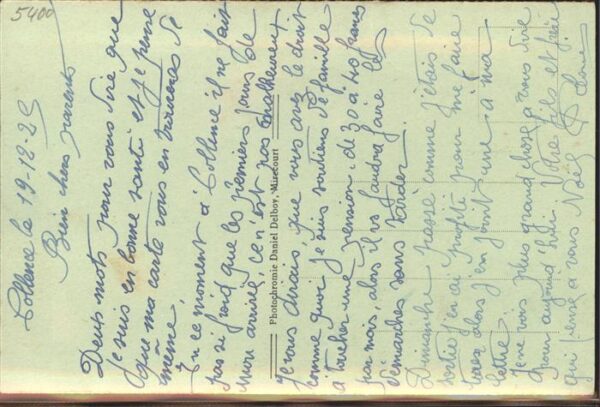 5400
le 19-12-29
Bien chers parents
Deux mots pour vous dire que
je suis en bonne santé et je pense
que ma carte vous en trouvera de
même.
En ce moment à il ne fait
pas si froid que les premiers jours de
mon arrivé, ce n'est pas
Je vous dirais, que vous avez le droit
comme quoi je suis soutiens de famille
à toucher une pension de 30 à 40 francs
par mois, alors il vs faudra faire les
démarches sans tarder.
Dimanche passé comme j'étais de
sortie j'en ai profité pour me faire
tirer alors j'en joint une à ma
lettre
Je ne vois plus grand chose à vous dire
pour aujourd'hui. Votre fils et frère
qui pense à vous Noël
Photochromie Daniel Delboy, Mirecourt